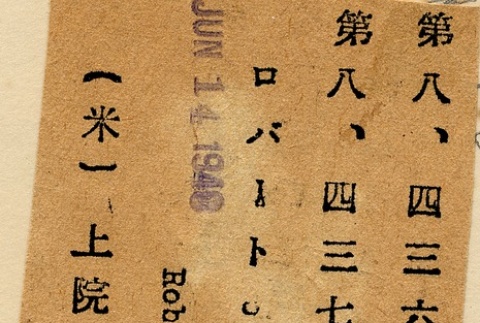 第八、四三六
第八、四三七
ロバート。
Rob
JUN 14 1940
(米)上院